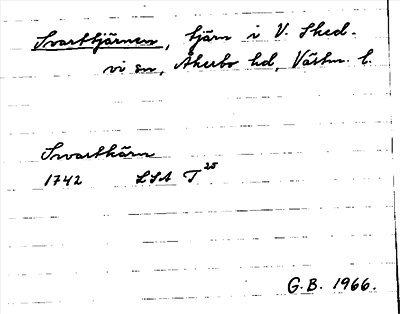 Svarttjärnen, tjärn i V. Sked-
vi sn, Åkerbo hd, Västm. l.
Svarttärn
1742 LSA T 25
G.B. 1966.